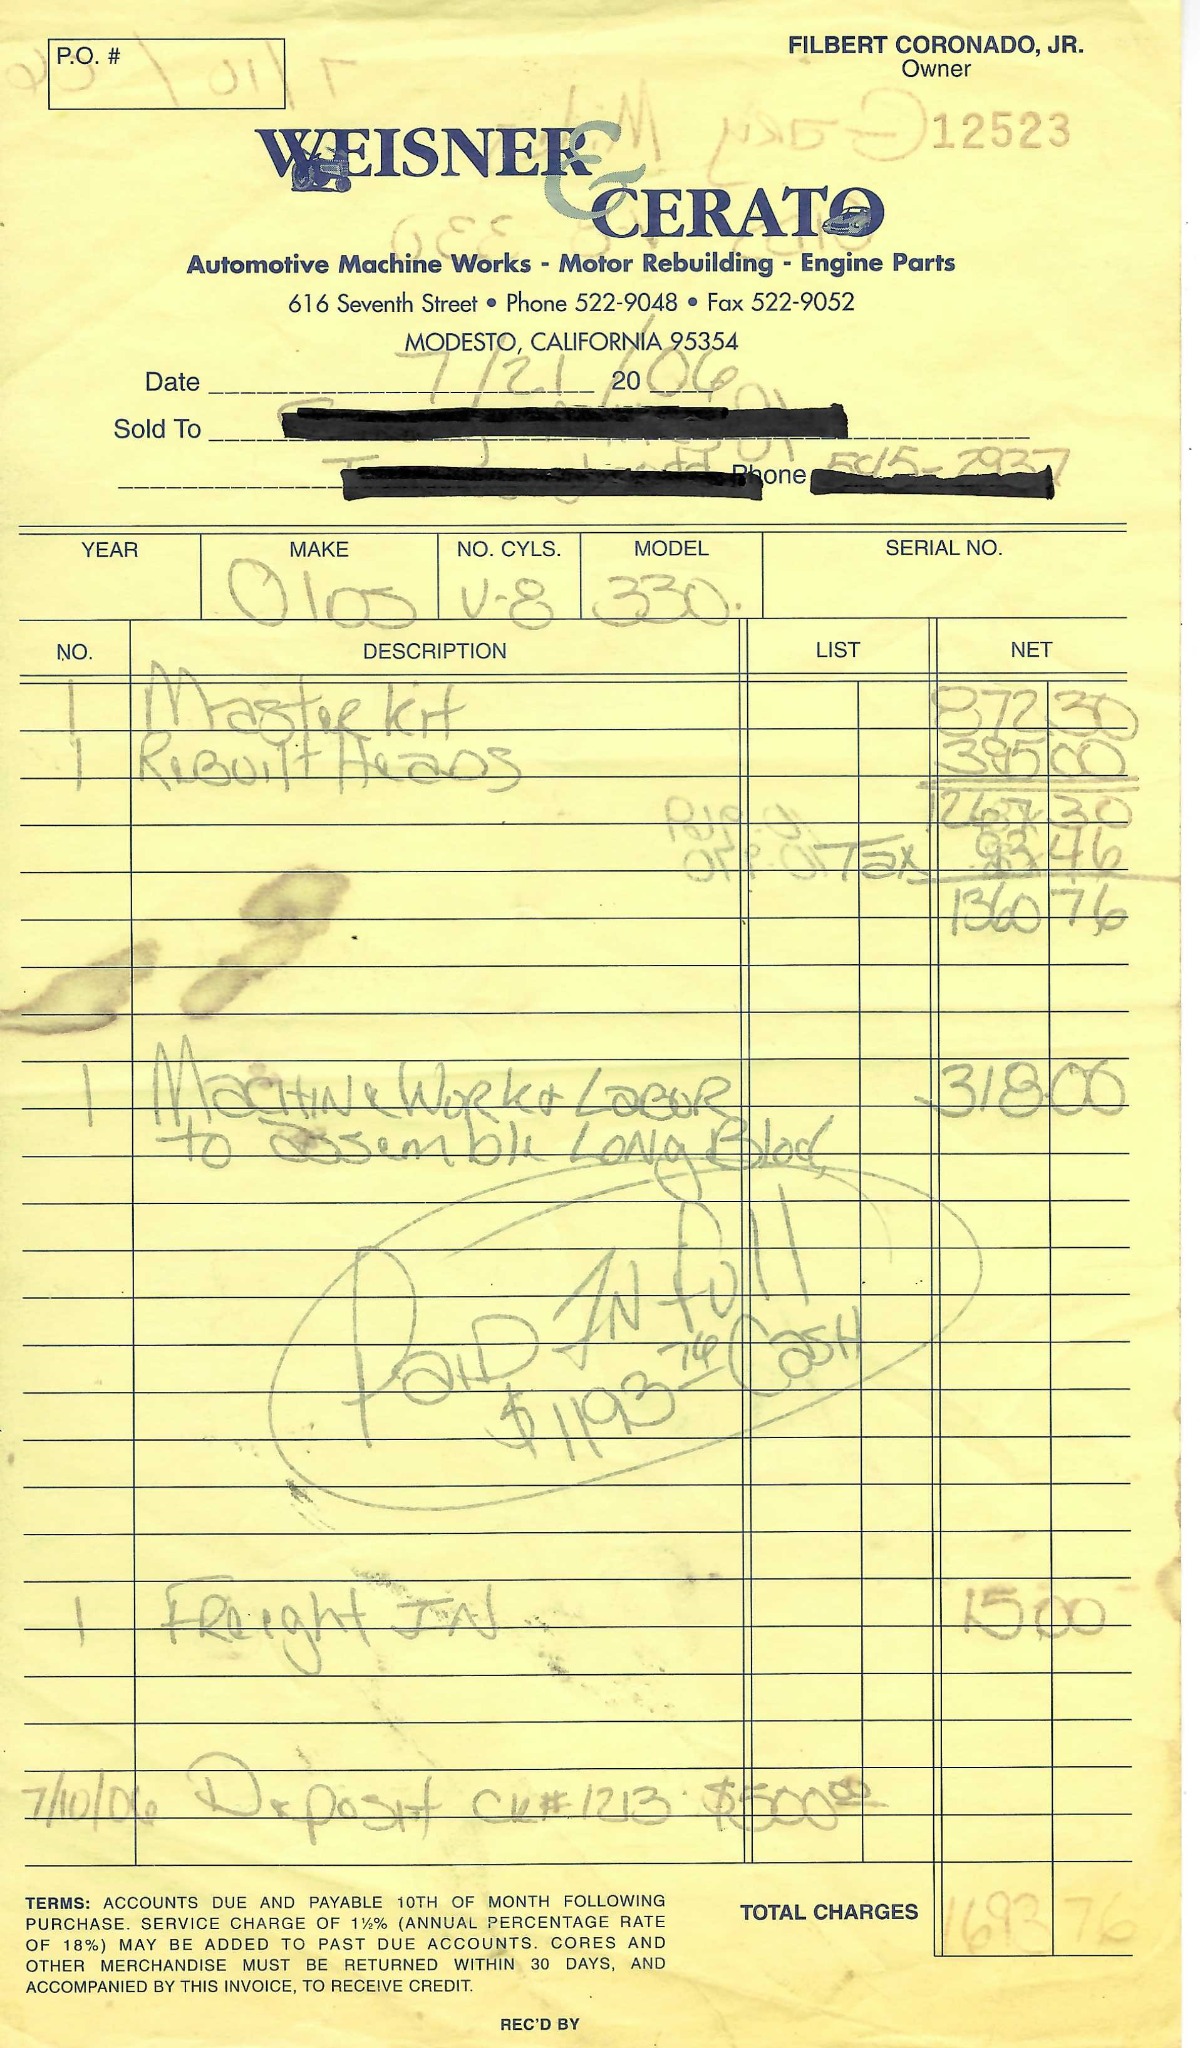 P.O. #
FILBERT CORONADO, JR.
Owner
12523
WEISNER
&
CERATO
Automotive Machine Works - Motor Rebuilding - Engine Parts
616 Seventh Street • Phone 522-9048 • Fax 522-9052
MODESTO, CALIFORNIA 95354
Date 7/21 20 /06
Sold To
Phone
YEAR MAKE NO. CYLS. MODEL SERIAL NO.
Olds V-8 330.
NO. DESCRIPTION LIST NET
1 Master Kit 872 30
1 Rebuilt Heads 395 00
1267 30
Tax 93 46
1360 76
1 Machine Work & Labor 318 00
to assemble Long Block
Paid In Full
$1193 76 Cash
1 Freight In 15 00
7/10/06 Deposit CK# 1213 $500 00
TERMS: ACCOUNTS DUE AND PAYABLE 10TH OF MONTH FOLLOWING
PURCHASE. SERVICE CHARGE OF 1½% (ANNUAL PERCENTAGE RATE
OF 18%) MAY BE ADDED TO PAST DUE ACCOUNTS. CORES AND
OTHER MERCHANDISE MUST BE RETURNED WITHIN 30 DAYS, AND
ACCOMPANIED BY THIS INVOICE, TO RECEIVE CREDIT.
TOTAL CHARGES 1693 76
REC'D BY